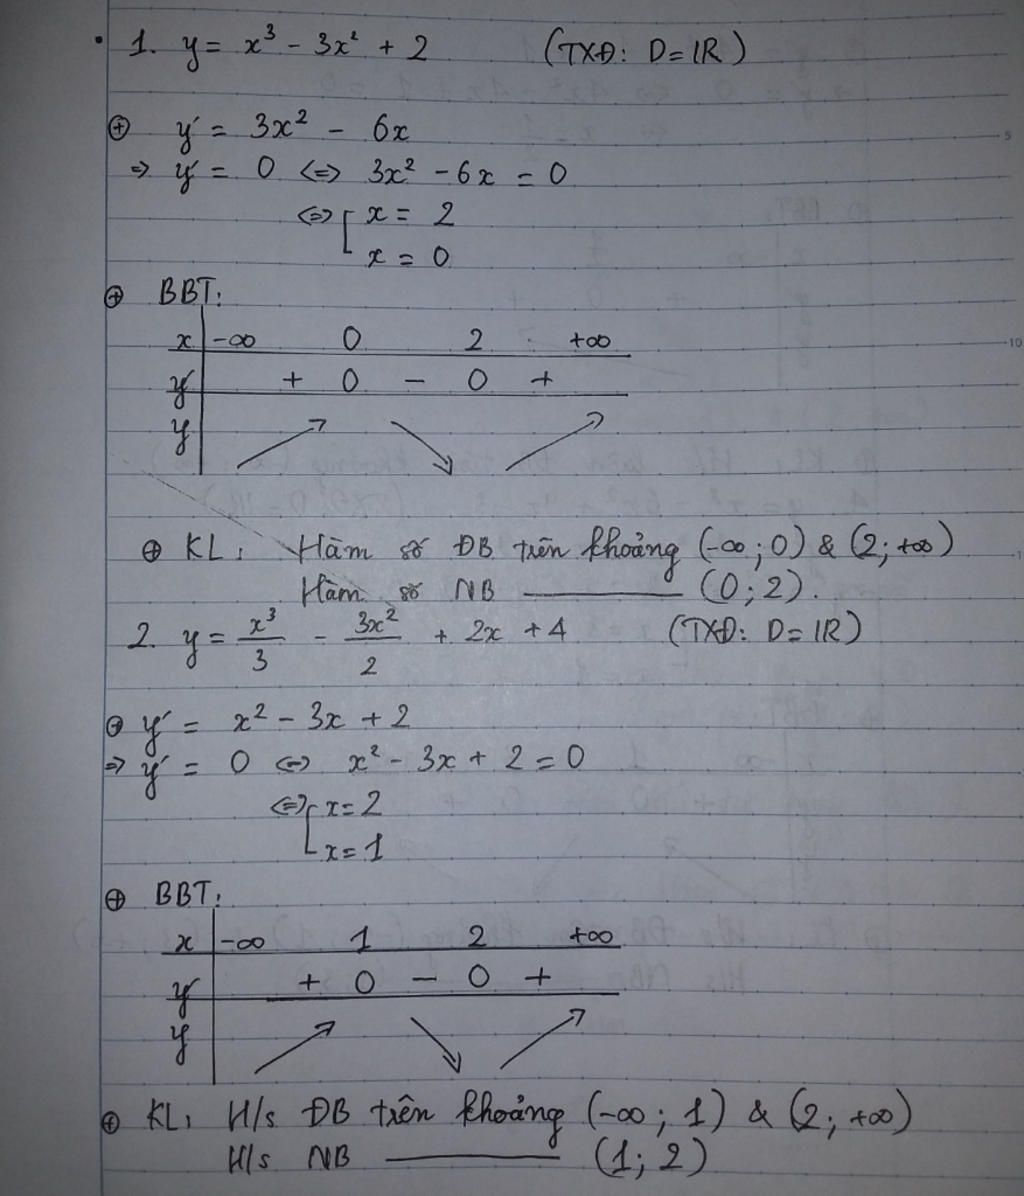 1. y = x³ - 3x² + 2 (TXĐ: D = IR)
⊕ y' = 3x² - 6x
⇒ y' = 0 ⇔ 3x² - 6x = 0
⇔ [ x = 2
x = 0
⊕ BBT:
x -∞ 0 2 +∞
y' + 0 - 0 +
y ↗ ↘ ↗
⊕ KL: Hàm số ĐB trên khoảng (-∞; 0) & (2; +∞)
Hàm số NB ——— (0; 2).
2. y = x³/3 - 3x²/2 + 2x + 4 (TXĐ: D = IR)
⊕ y' = x² - 3x + 2
⇒ y' = 0 ⇔ x² - 3x + 2 = 0
⇔ [ x = 2
x = 1
⊕ BBT:
x -∞ 1 2 +∞
y' + 0 - 0 +
y ↗ ↘ ↗
⊕ KL: H/s ĐB trên khoảng (-∞; 1) & (2; +∞)
H/s NB ——— (1; 2)